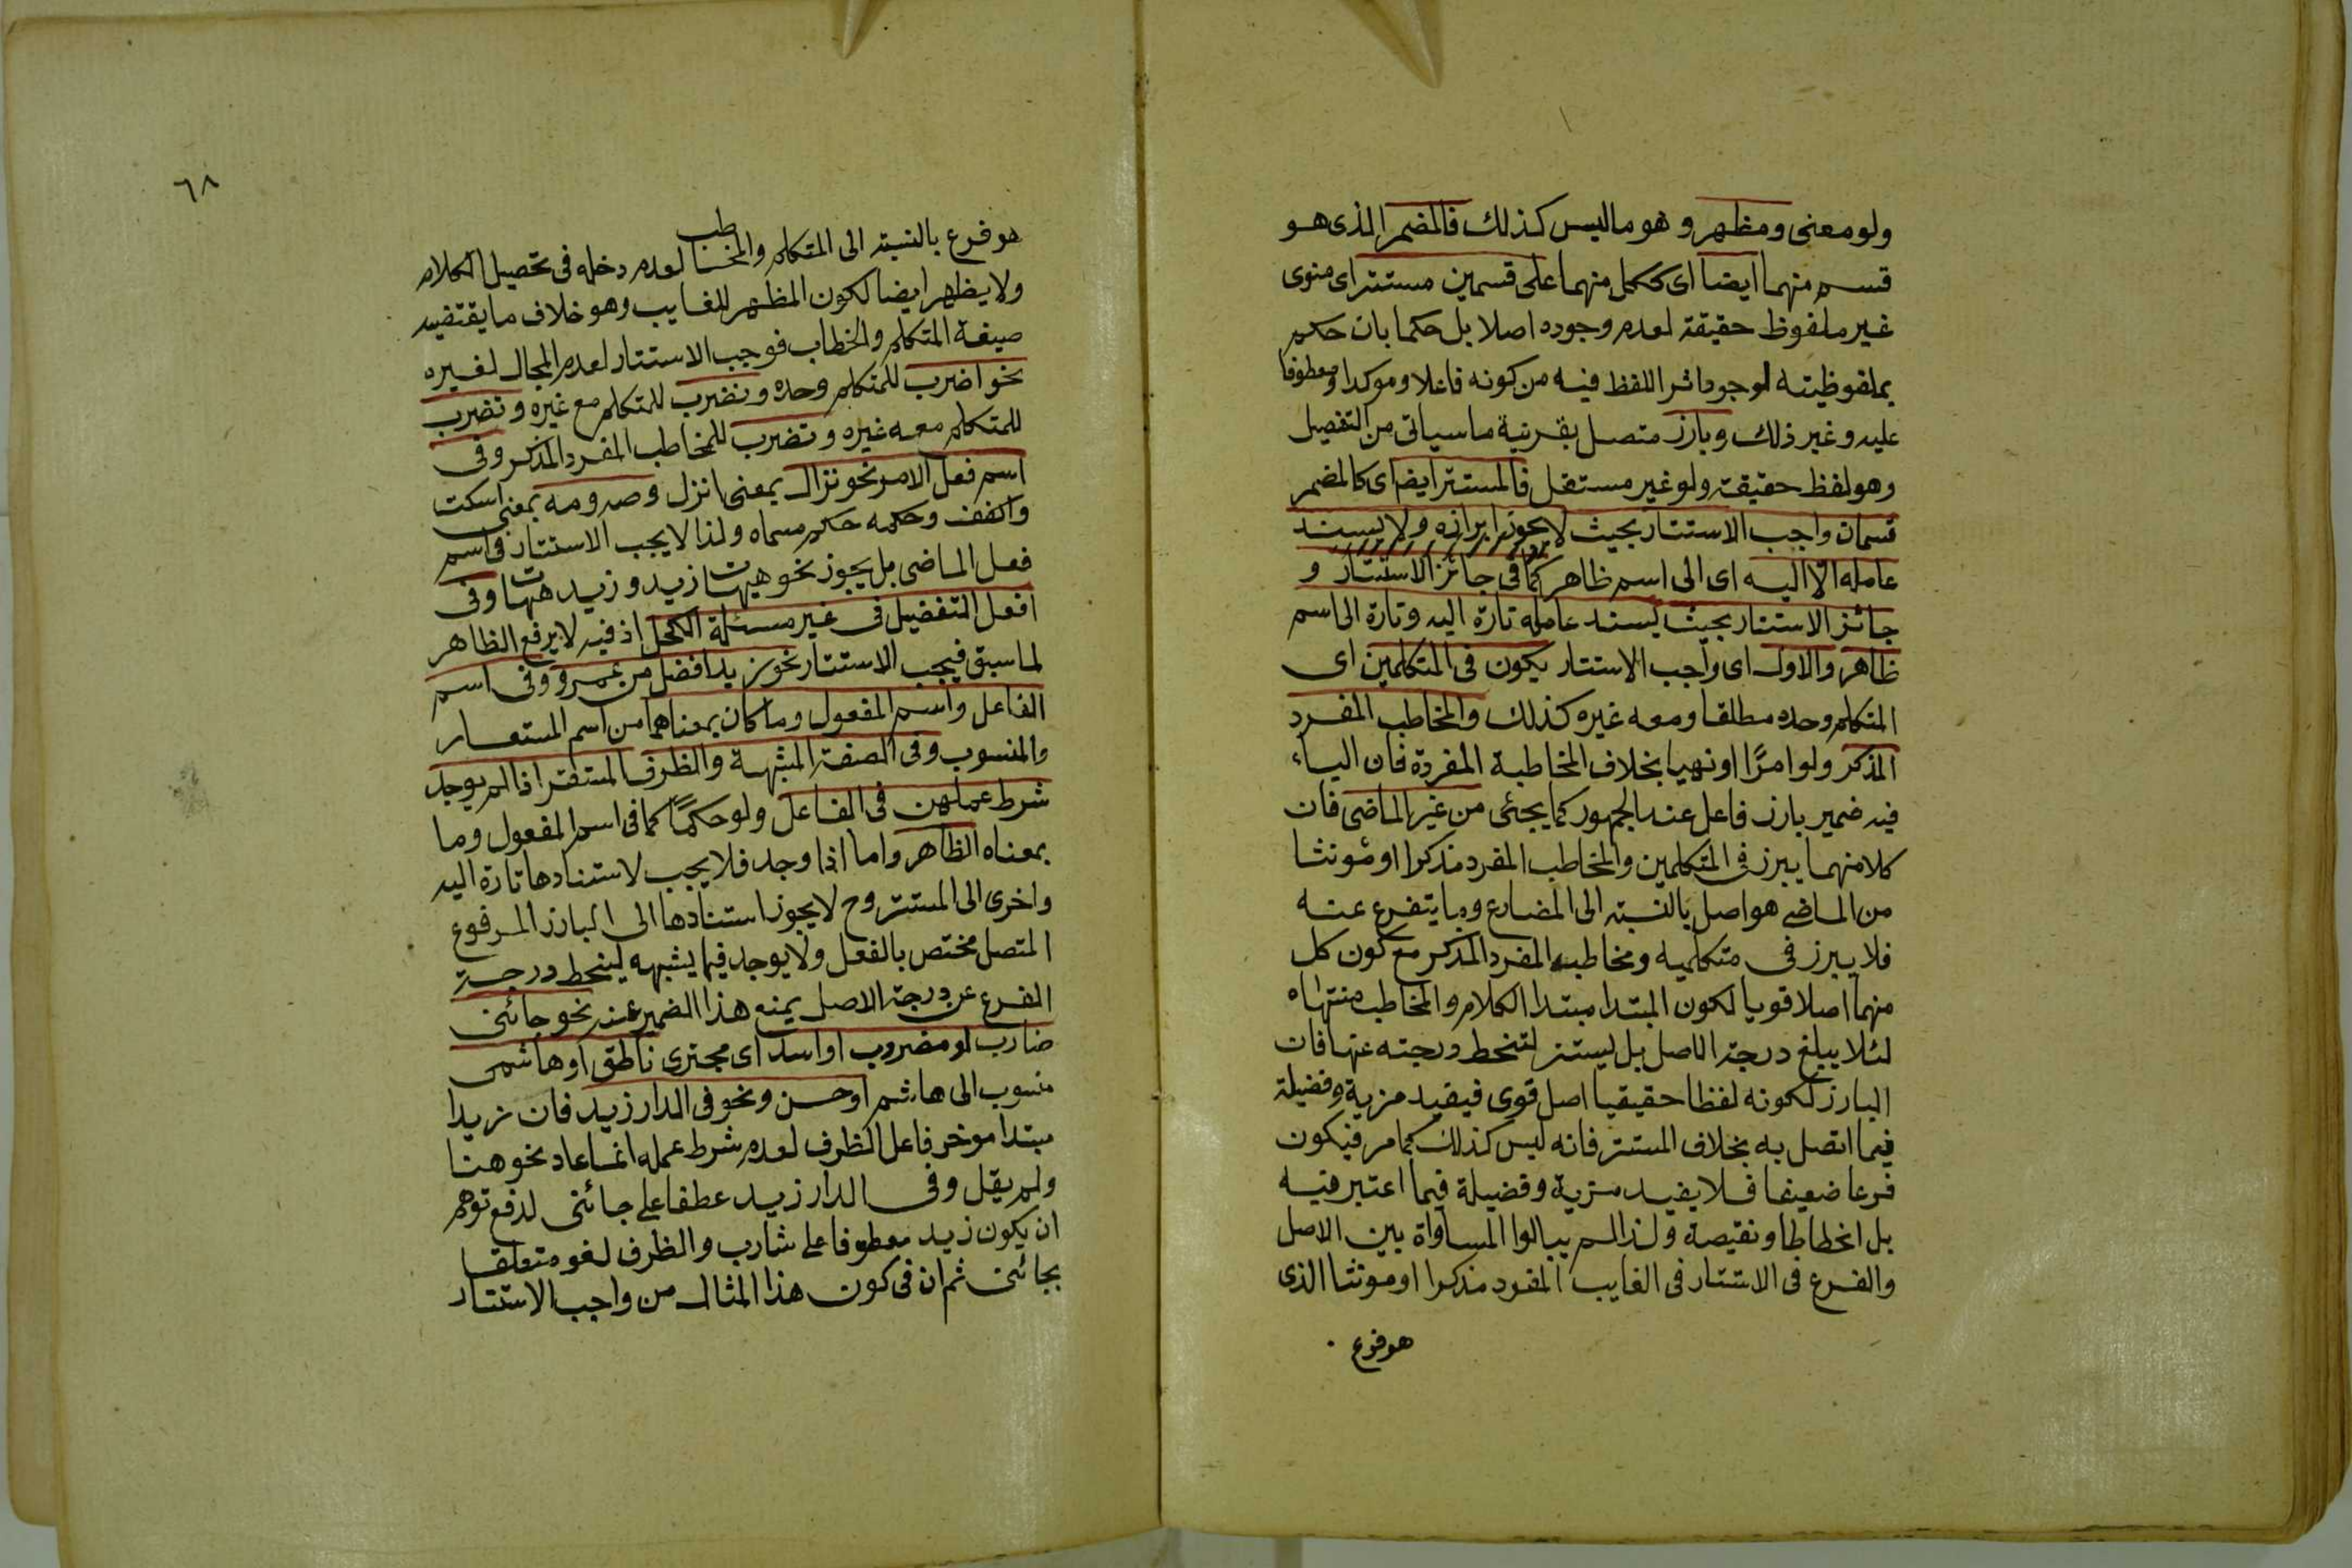 ولو معنى ومظهر وهو ما ليس كذلك فالمضمر الذى هو
قسم منهما ايضا اى ككل منهما على قسمين مستتر اى منوى
غير ملفوظ حقيقة لعدم وجوده اصلا بل حكما بان حكم
بملفوظيته لوجود اثر اللفظ فيه من كونه فاعلا وموكدا ومعطوفا
عليه وغير ذلك وبارز متصل بقرينة ما سياتى من التفصيل
وهو لفظ حقيقة ولو غير مستقل فالمستتر ايضا اى كالمضمر
قسمان واجب الاستتار بحيث لا يجوز ابرازه ولا يسند
عامله الا اليه اى الى اسم ظاهر كما فى جائز الاستتار و
جائز الاستتار بحيث يسند عامله تارة اليه وتارة الى اسم
ظاهر والاول اى واجب الاستتار يكون فى المتكلمين اى
المتكلم وحده مطلقا ومعه غيره كذلك والمخاطب المفرد
المذكر ولو امرًا او نهيا بخلاف المخاطبة المفردة فان الياء
فيه ضمير بارز فاعل عند الجمهور كما يجئى من غير الماضى فان
كلا منهما يبرز فى المتكلمين والمخاطب المفرد مذكرا او مؤنثا
من الماضى هو اصل بالنسبة الى المضارع وما يتفرع عنه
فلا يبرز فى متكلميه ومخاطبه المفرد المذكر مع كون كل
منهما اصلا قويا لكون المبتدا مبتدا الكلام والمخاطب منتهاه
لئلا يبلغ درجة الاصل بل يستتر لتنحط درجته عنها فان
البارز لكونه لفظا حقيقيا اصل قوى فيفيد مزية وفضيلة
فيما اتصل به بخلاف المستتر فانه ليس كذلك كما مر فيكون
فرعا ضعيفا فلا يفيد مزية وفضيلة فيما اعتبر فيه
بل انحطاطا ونقيصة ولذا لم يبالوا المساواة بين الاصل
والفرع فى الاستتار فى الغايب المفرد مذكرا او مونثا الذى
هو فرع
٦٨
هو فرع بالنسبة الى المتكلم والمخاطب لعدم دخله فى تحصيل الكلام
ولا يظهر ايضا لكون المظهر للغايب وهو خلاف ما يقتضيه
صيغة المتكلم والخطاب فوجب الاستتار لعدم المجال لغيره
نحو اضرب للمتكلم وحده ونضرب للمتكلم مع غيره وتضرب
للمتكلم معه غيره وتضرب للمخاطب المفرد المذكر وفى
اسم فعل الامر نحو نزال بمعنى انزل وصه ومه بمعنى اسكت
واكفف وحكمه حكم مسماه ولذا لا يجب الاستتار فى اسم
فعل الماضى بل يجوز نحو هيهات زيد وزيد هيهات وفى
افعل التفضيل فى غير مسئلة الكحل اذ فيه لا يرفع الظاهر
لما سبق فيجب الاستتار نحو زيد افضل من عمرو وفى اسم
الفاعل واسم المفعول وما كان بمعناهما من اسم المستعار
والمنسوب وفى الصفة المشبهة والظرف المستقر اذا لم يوجد
شرط عملهن فى الفاعل ولو حكمًا كما فى اسم المفعول وما
بمعناه الظاهر واما اذا وجد فلا يجب لاستنادها تارة اليه
واخرى الى المستتر وح لا يجوز استنادها الى البارز المرفوع
المتصل مختص بالفعل ولا يوجد فيما يشبهه لينحط درجة
الفرع عن درجة الاصل يمنع هذا الضمير عنه نحو جائنى
ضارب او مضروب او اسد اى مجترى ناطق او هاشمى
منسوب الى هاشم او حسن ونحو فى الدار زيد فان زيدا
مبتدا موخر فاعل الظرف لعدم شرط عمله انما عاد نحو هنا
ولم يقل وفى الدار زيد عطفا على جائنى لدفع توهم
ان يكون زيد معطوفا على شارب والظرف لغو متعلقا
بجائنى ثم ان فى كون هذا المثال من واجب الاستتار